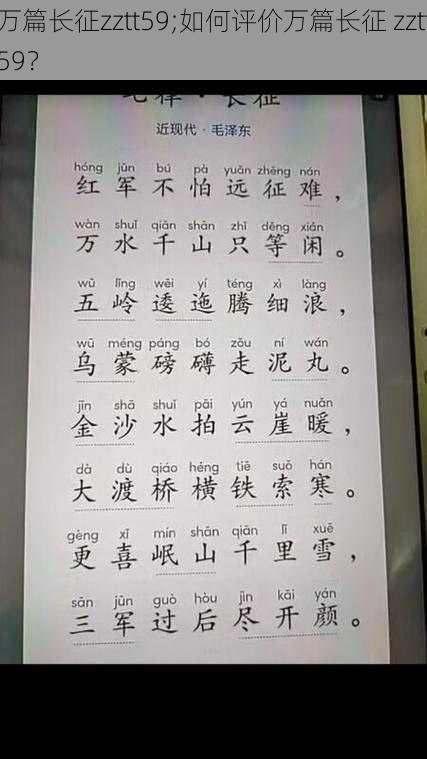 万篇长征zztt59;如何评价万篇长征 zztt
59?
七律·长征
近现代·毛泽东
hóng jūn bú pà yuǎn zhēng nán
红军不怕远征难，
wàn shuǐ qiān shān zhǐ děng xián
万水千山只等闲。
wǔ lǐng wēi yí téng xì làng
五岭逶迤腾细浪，
wū méng páng bó zǒu ní wán
乌蒙磅礴走泥丸。
jīn shā shuǐ pāi yún yá nuǎn
金沙水拍云崖暖，
dà dù qiáo héng tiě suǒ hán
大渡桥横铁索寒。
gèng xǐ mín shān qiān lǐ xuě
更喜岷山千里雪，
sān jūn guò hòu jìn kāi yán
三军过后尽开颜。